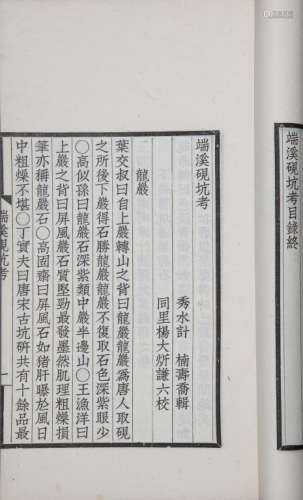 端溪硯坑考目錄終
端溪硯坑考
秀水計　楠壽喬輯
同里楊大　謙六校
龍巖
葉交叔曰自上巖轉山之背曰龍巖龍巖爲唐人取硯
之所後下巖得石勝龍巖龍巖不復取石色深紫眼少
〇高似孫曰龍巖石深紫類中巖半邊山〇王漁洋曰
上巖之背曰屏風巖石質堅勁最發墨然肌理粗燥損
筆亦稱龍巖石〇高固齋曰屏風石如猪肝曝於風日
中粗燥不堪〇丁寶夫曰唐宋古坑硏共有十餘品最
端溪硯坑考
一